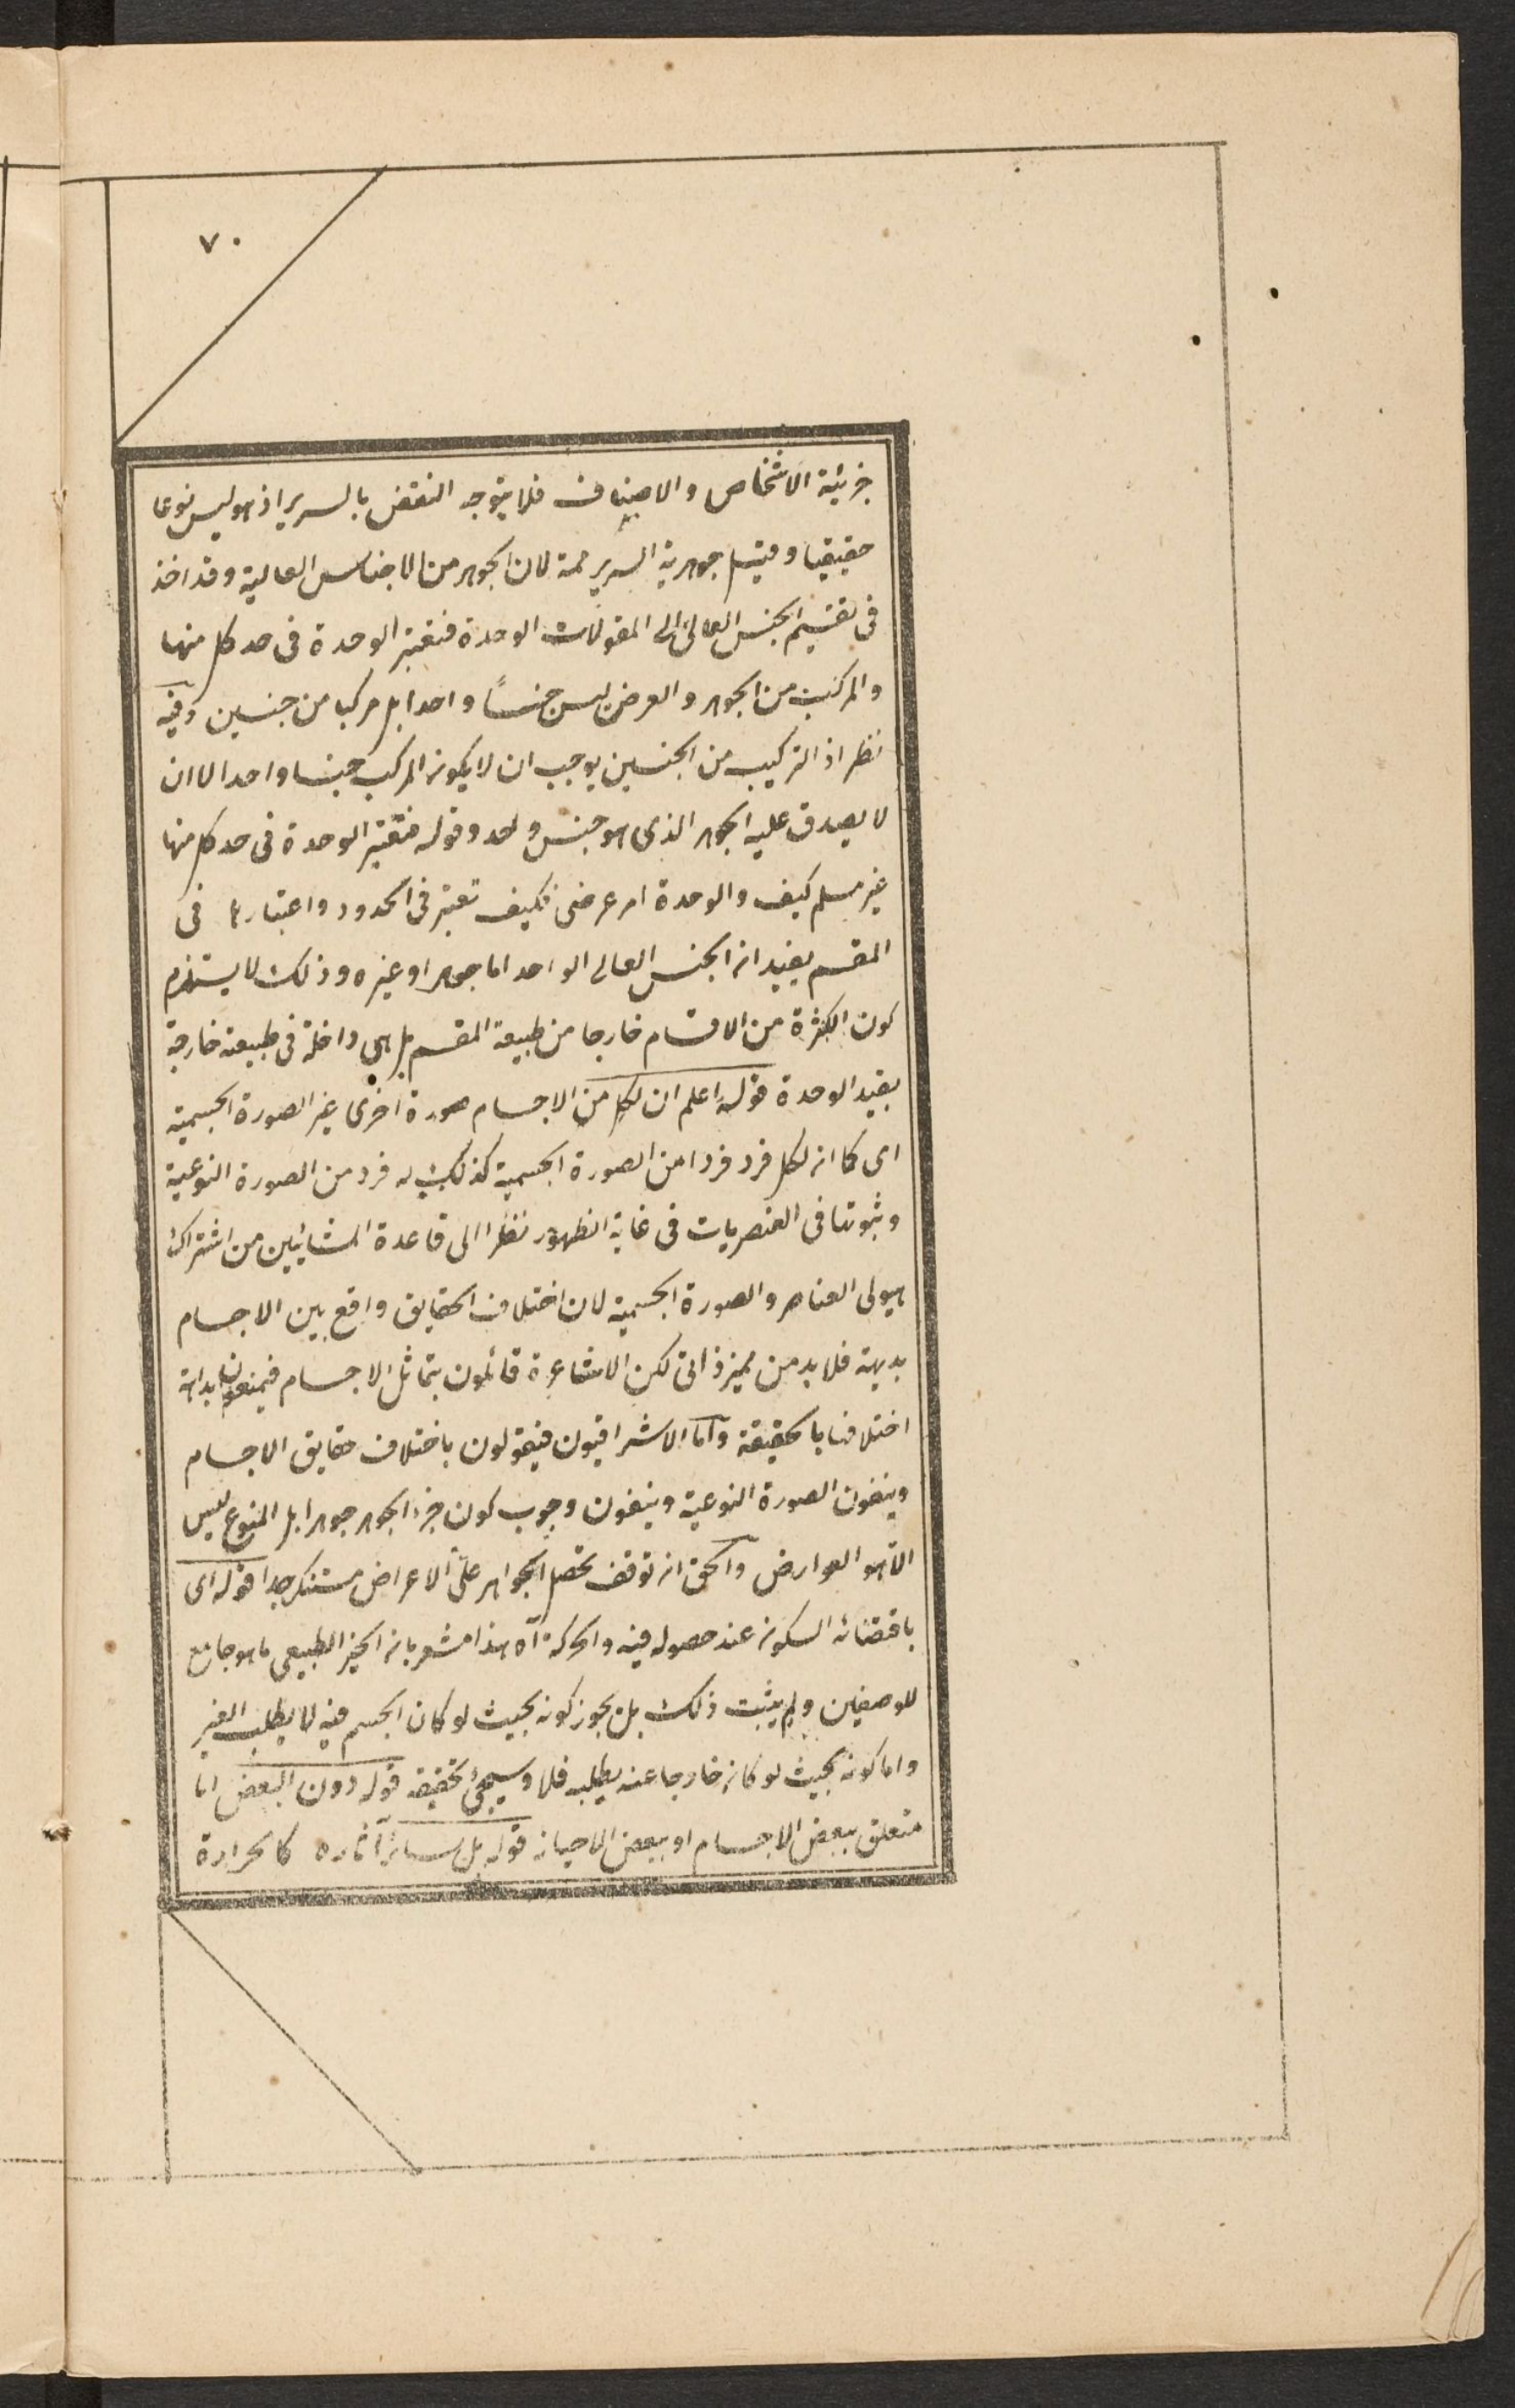 ٧٠
جزئية الاشخاص والاصناف فلا يتوجه النقض بالسرير اذ هو ليس نوعا
حقيقيا وقيل جوهرية السرير ممة لان الجوهر من الاجناس العالية وقد اخذ
فى تقسيم الجنس العالى الى المقولات الوحدة فتعتبر الوحدة فى حد كل منها
والمركب من الجوهر والعرض ليس جنسًا واحدا بل مركبا من جنسين وفيه
نظر اذ التركيب من الجنسين يوجب ان لا يكون المركب جنسا واحدا لا ان
لا يصدق عليه الجوهر الذى هو جنس واحد وقوله فتعتبر الوحدة فى حد كل منها
غير مسلم كيف والوحدة امر عرضى فكيف تعتبر فى الحدود واعتبارها فى
المقسم يفيد ان الجنس العالى الواحد اما جوهر او غيره وذلك لا يستلزم
كون الكثرة من الاقسام خارجا من طبيعة المقسم بل هى داخلة فى طبيعته خارجة
بقيد الوحدة قوله اعلم ان لكل من الاجسام صورة اخرى غير الصورة الجسمية
اى كما ان لكل فرد فردا من الصورة الجسمية كذلك له فرد من الصورة النوعية
وثبوتها فى العنصريات فى غاية الظهور نظرا الى قاعدة المشائيين من اشتراك
هيولى العناصر والصورة الجسمية لان اختلاف الحقايق واقع بين الاجسام
بديهة فلا بد من مميز ذاتى لكن الاشاعرة قائلون بتماثل الاجسام فيمنعون بداهة
اختلافها بالحقيقة واما الاشراقيون فيقولون باختلاف حقايق الاجسام
وينفون الصورة النوعية وينفون وجوب كون جزء الجوهر جوهرا بل المنوع ليس
الا هو العوارض والحق ان توقف تحصل الجواهر على الاعراض مستنكر جدا قوله اى
باقتضائه السكون عند حصوله فيه والحركة اه هذا مشعر بان الحيز الطبيعى ما هو جامع
للوصفين ولم يثبت ذلك بل يجوز كونه بحيث لو كان الجسم فيه لا يطلب الغير
واما كونه بحيث لو كان خارجا عنه يطلبه فلا وسيجئ تحقيقه قوله دون البعض اما
متعلق ببعض الاجسام او ببعض الاحياز قوله بل سائر آثاره كالحرارة